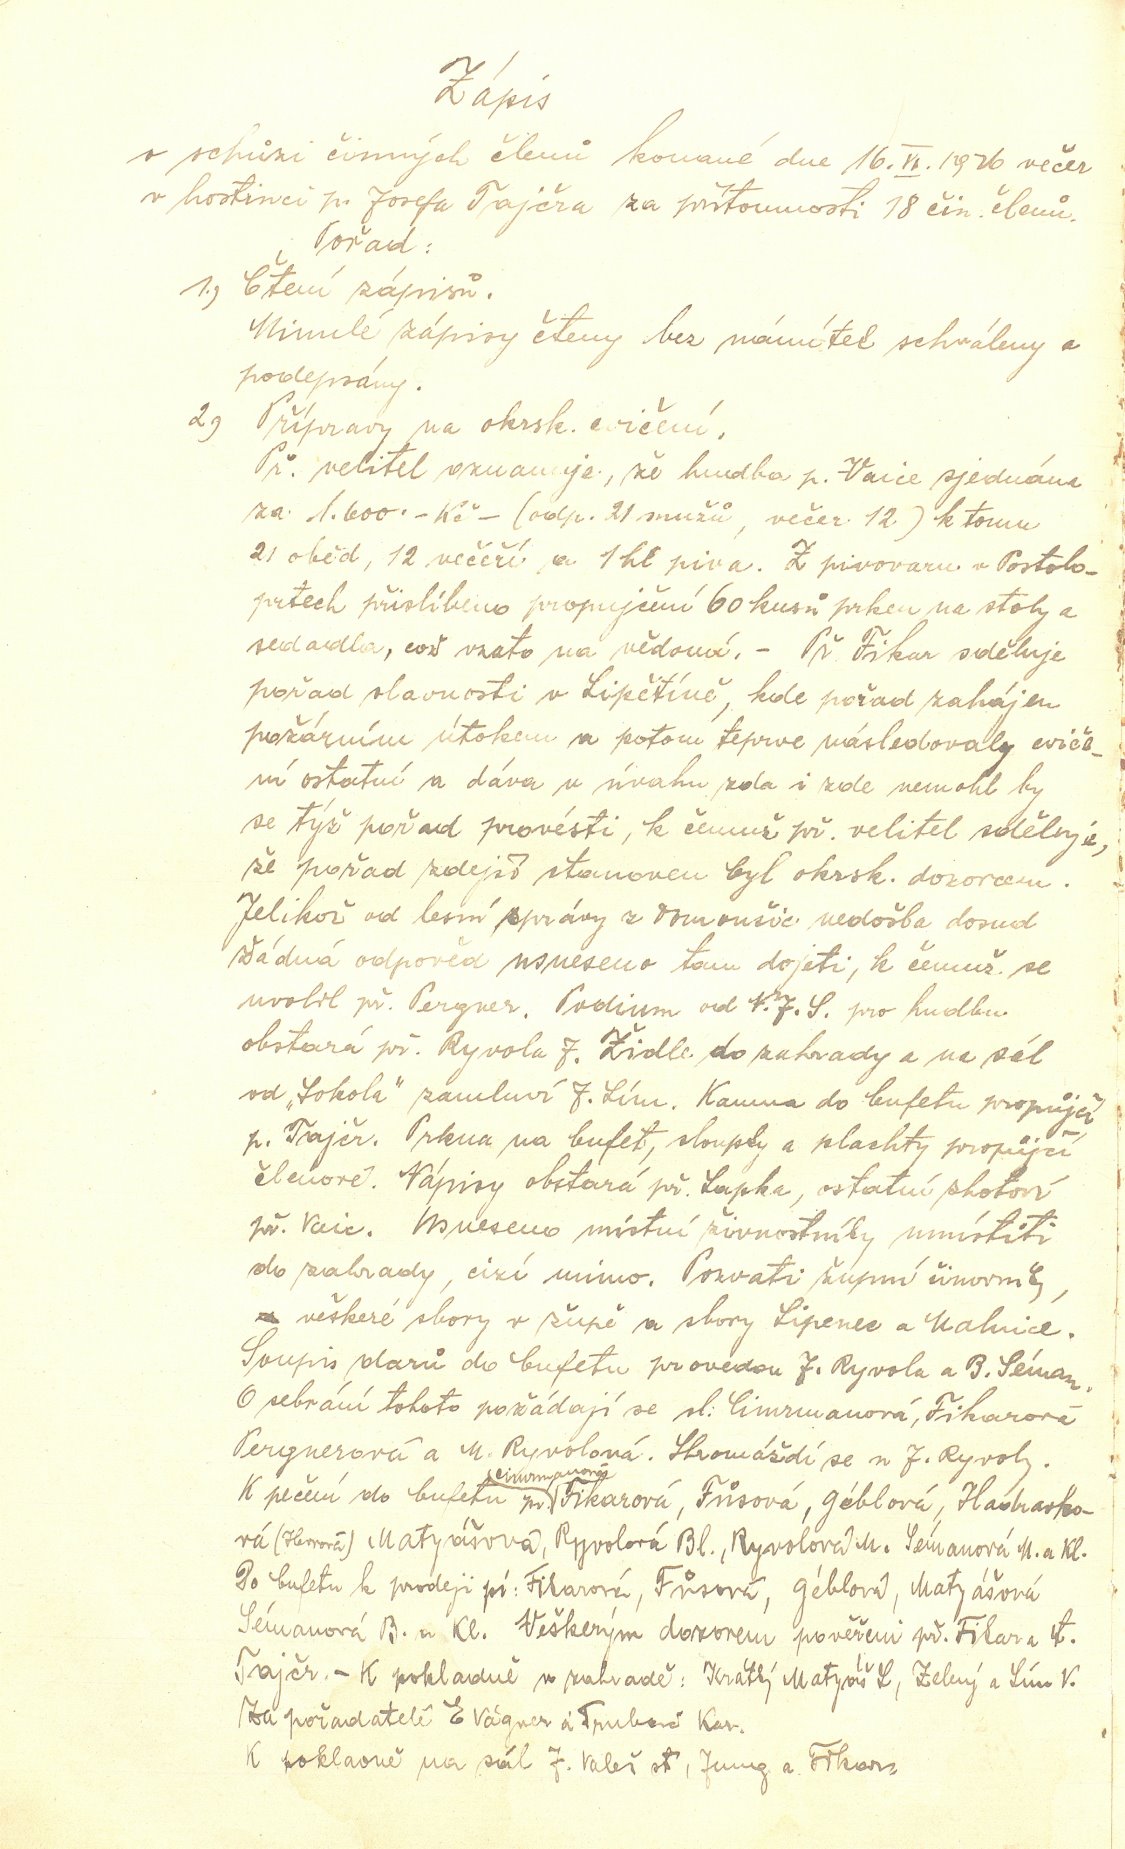 Zápis
o schůzi činných členů konané dne 16. VI. 1926 večer
v hostinci p. Josefa Tajčra za přítomnosti 18 čin. členů.
Pořad:
1.) Čtení zápisů.
Minulé zápisy čteny bez námitek schváleny a
podepsány.
2.) Přípravy na okrsk. cvičení.
Př. velitel oznamuje, že hudba p. Vaice sjednána
za 1.600.- Kč - (odp. 21 mužů, večer 12) k tomu
21 oběd, 12 večeří a 1 hl piva. Z pivovaru v Postolo-
prtech přislíbeno propujčení 60 kusů prken na stoly a
sedadla, což vzato na vědomí. - Př. Fikar sděluje
pořad slavnosti v Lipětíně, kde pořad zahájen
požárním útokem a potom teprve následovaly cviče-
ní ostatní a dáva v úvahu zda i zde nemohl by
se týž pořad provésti, k čemuž př. velitel sděluje,
že pořad zdejší stanoven byl okrsk. dozorcem.
Jelikož od lesní správy z Domoušic nedošla dosud
žádná odpověd usneseno tam dojeti, k čemuž se
uvolil př. Pergner. Podium od N.J.S. pro hudbu
obstará př. Ryvola J. Židle do zahrady a na sál
od „Sokola" zamluví J. Sím. Kamna do bufetu propůjčí
p. Tajčr. Prkna na bufet, sloupky a plachty propůjčí
členové. Nápisy obstará př. Lapka, ostatní zhotoví
př. Vaic. Usneseno místní živnostníky umístiti
do zahrady, cizí mimo. Pozvati župní činovníky,
veškeré sbory v župě a sbory Lipenec a Malnice.
Soupis darů do bufetu provedou J. Ryvola a B. Séman.
O sebrání tohoto požádají se sl: Cimrmanová, Fikarová
Pergnerová a M. Ryvolová. Shromáždí se u J. Ryvoly.
Cimrmanová
K pečení do bufetu pí. Fikarová, Fůsová, Géblová,
rá (Horová) Matyášová, Ryvolová Bl., Ryvolová M. Sémanová M. a Kl.
Do bufetu k prodeji pí: Fikarová, Fůsová, Géblová, Matyášová
Sémanová B. a Kl. Veškerým dozorem pověřeni př. Fikar a
Tajčr. - K pokladně v zahradě: Krátký Matyáš L, Zelený a Sím V.
Za pořadatelé E Vágner a Kar.
K pokladně na sál J. Valeš st, Jung a Fikar